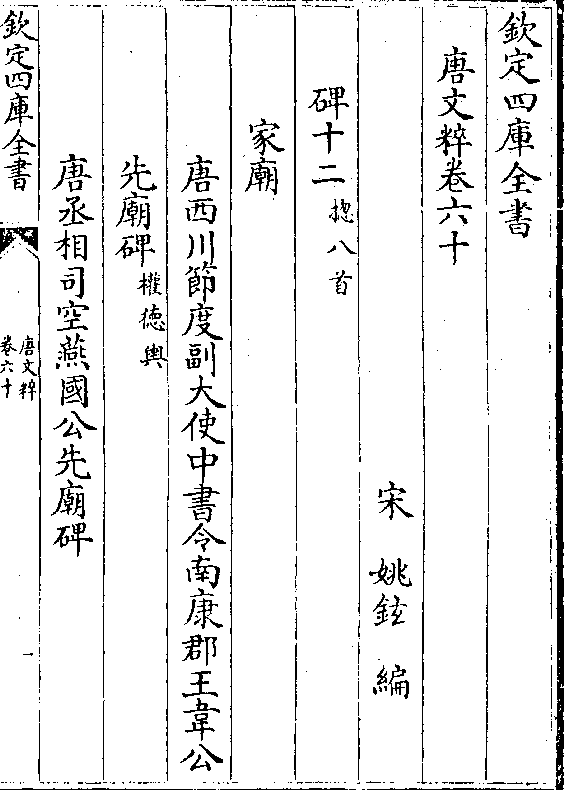 欽定四庫全書
唐文粹卷六十
宋　姚鉉　編
碑十二揔八首
家廟
唐西川節度副大使中書令南康郡王韋公
先廟碑權德輿
唐丞相司空燕國公先廟碑
欽定四庫全書
唐文粹
卷六十
一